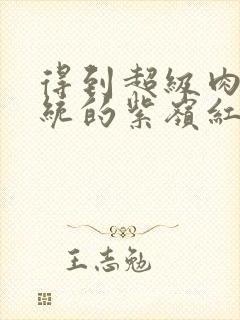 得到超級肉
統的紫嶺紅
王志勉